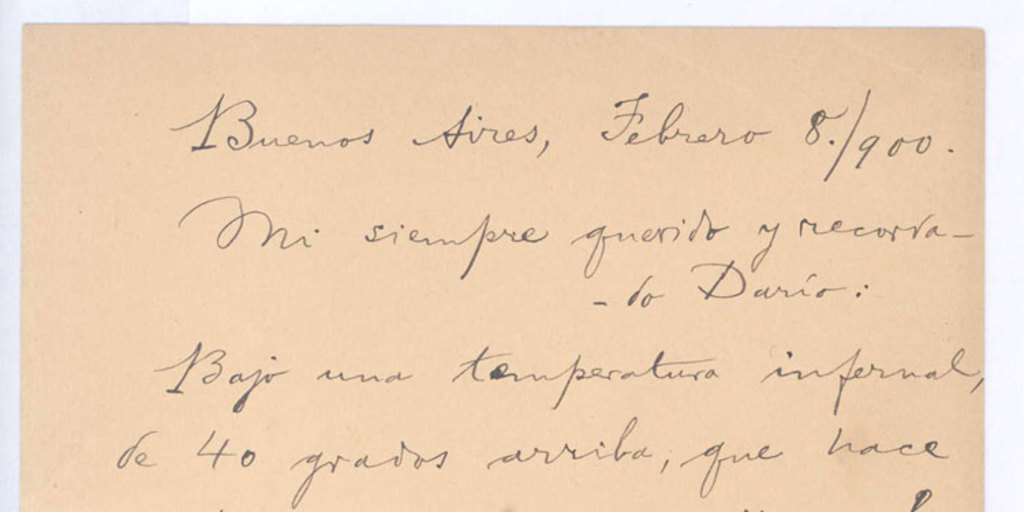 Buenos Aires, Febrero 8./900.
Mi siempre querido y recorda-
-do Darío:
Bajo una temperatura infernal,
de 40 grados arriba, que hace